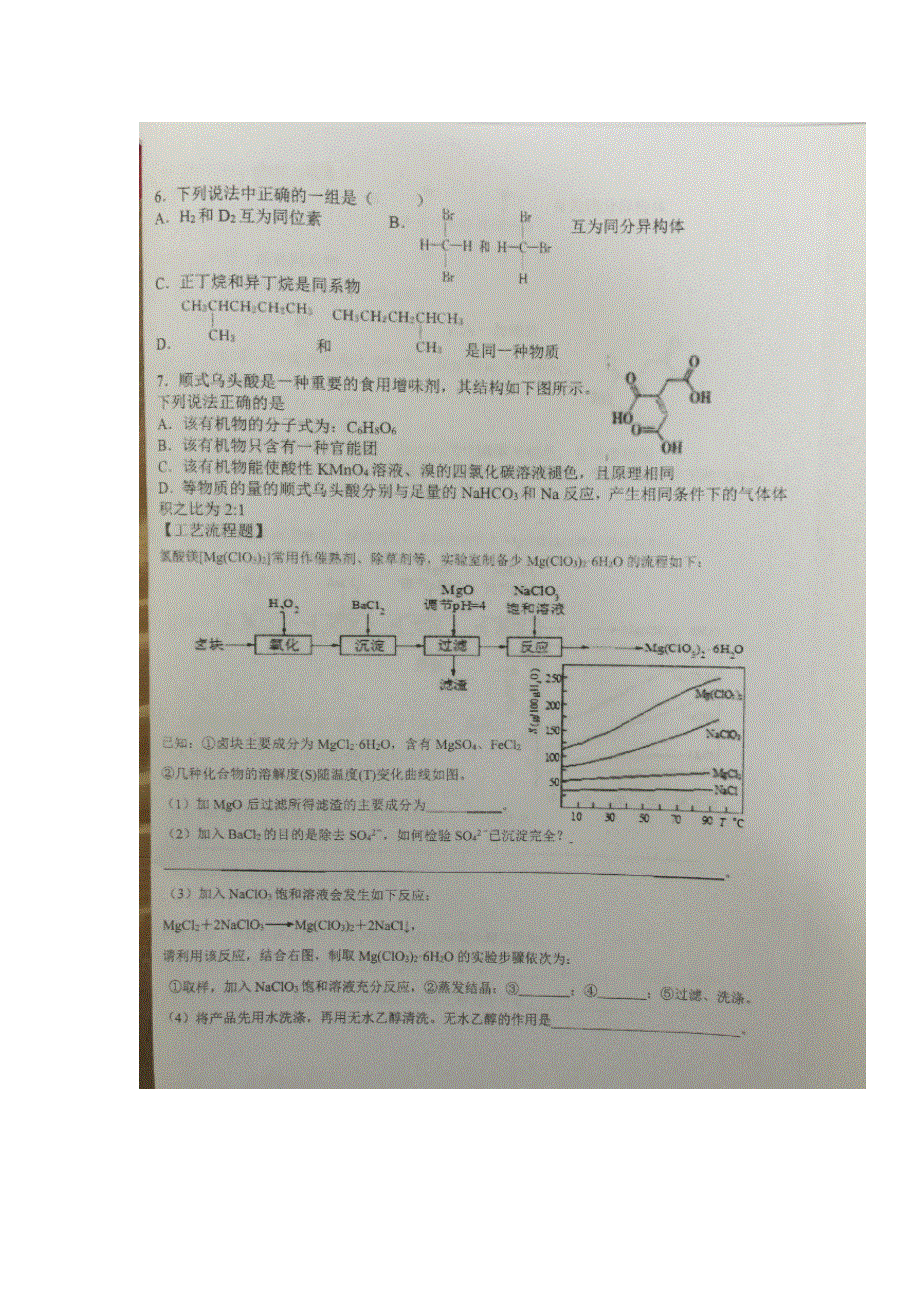 6. 下列说法中正确的一组是（ ）
A. H₂和 D₂互为同位素
B.
Br Br
H—C—H 和 H—C—Br
Br H
互为同分异构体
C. 正丁烷和异丁烷是同系物
CH₃CHCH₂CH₂CH₃ CH₃CH₂CH₂CHCH₃
CH₃ CH₃
D. 和 是同一种物质
7. 顺式乌头酸是一种重要的食用增味剂，其结构如下图所示。
下列说法正确的是
O O OH HO O OH
A. 该有机物的分子式为：C₆H₈O₆
B. 该有机物只含有一种官能团
C. 该有机物能使酸性 KMnO₄溶液、溴的四氯化碳溶液褪色，且原理相同
D. 等物质的量的顺式乌头酸分别与足量的 NaHCO₃和 Na 反应，产生相同条件下的气体体
积之比为 2:1
【工艺流程题】
氯酸镁[Mg(ClO₃)₂]常用作催熟剂、除草剂等，实验室制备少 Mg(ClO₃)₂·6H₂O 的流程如下：
MgO NaClO₃
H₂O₂ BaCl₂ 调节pH=4 饱和溶液
卤块 氧化 沉淀 过滤 反应 Mg(ClO₃)₂·6H₂O
滤渣
S(g/100gH₂O)
250
200
150
100
50
Mg(ClO₃)₂
NaClO₃
MgCl₂
NaCl
10 30 50 70 90 T °C
已知：①卤块主要成分为 MgCl₂·6H₂O，含有 MgSO₄、FeCl₂
②几种化合物的溶解度(S)随温度(T)变化曲线如图。
（1）加 MgO 后过滤所得滤渣的主要成分为__________。
（2）加入 BaCl₂的目的是除去 SO₄²⁻，如何检验 SO₄²⁻已沉淀完全？
______________________________。
（3）加入 NaClO₃饱和溶液会发生如下反应：
MgCl₂＋2NaClO₃→Mg(ClO₃)₂＋2NaCl↓，
请利用该反应，结合右图，制取 Mg(ClO₃)₂·6H₂O 的实验步骤依次为：
①取样，加入 NaClO₃饱和溶液充分反应，②蒸发结晶；③_______；④_______；⑤过滤、洗涤。
（4）将产品先用水洗涤，再用无水乙醇清洗。无水乙醇的作用是____________________。